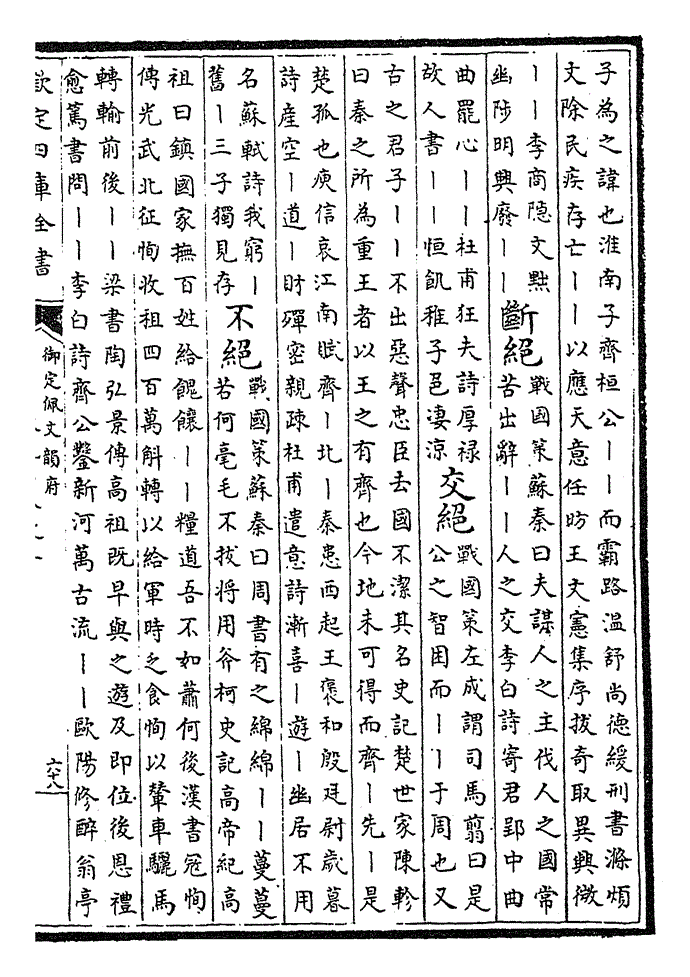 子為之諱也淮南子齊桓公丨丨而霸路温舒尚德緩刑書滌煩
文除民疾存亡丨丨以應天意任昉王文憲集序拔奇取異興微
丨丨李商隠文㸃
幽陟明興廢丨丨
斷絕
戰國策蘇秦曰夫謀人之主伐人之國常
苦出辭丨丨人之交李白詩寄君郢中曲
曲罷心丨丨杜甫狂夫詩厚禄
故人書丨丨恒飢稚子色凄涼
交絕
戰國策左成謂司馬翦曰是
公之智困而丨丨于周也又
古之君子丨丨不出惡聲忠臣去國不潔其名史記楚世家陳軫
曰秦之所為重王者以王之有齊也今地未可得而齊丨先丨是
楚孤也庾信哀江南賦齊丨北丨秦患西起王褒和殷廷尉歳暮
詩産空丨道丨財殫密親疎杜甫遣意詩漸喜丨遊丨幽居不用
名蘇軾詩我窮丨
舊丨三子獨見存
不絕
戰國策蘇秦曰周書有之綿綿丨丨蔓蔓
若何毫毛不拔將用斧柯史記高帝紀高
祖曰鎮國家撫百姓給餽饟丨丨糧道吾不如蕭何後漢書宼恂
傳光武北征恂收租四百萬斛轉以給軍時乏食恂以輦車驪馬
轉輸前後丨丨梁書陶弘景傳高祖既早與之遊及即位後恩禮
愈篤書問丨丨李白詩齊公鑿新河萬古流丨丨歐陽修醉翁亭
欽定四庫全書
御定佩文韻府
六十八